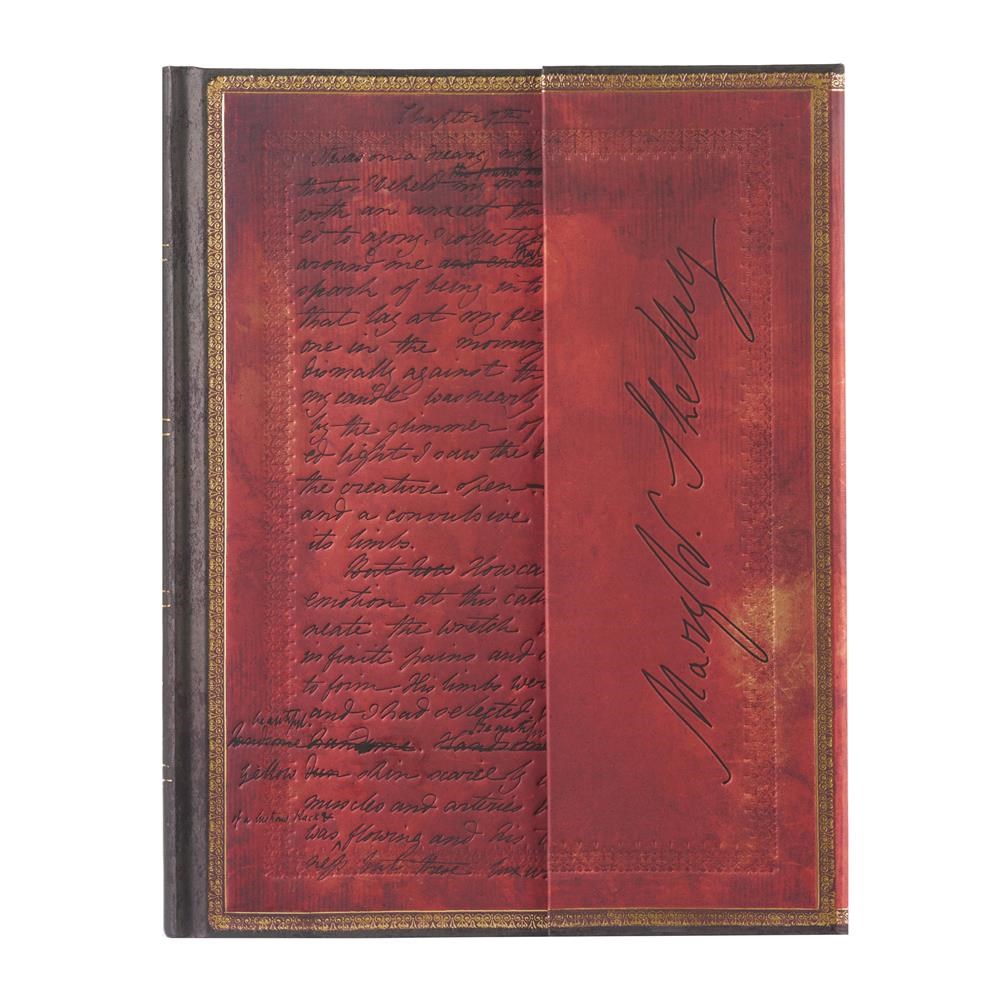 Chapter 7th
It was on a dreary nigh
the frame on
that I beheld my man
with an anxiet that
ed to agony. I collect
that
around me and endea
spark of being into
that lay at my feet
one in the morning
dismally against the
my candle was nearly
by the glimmer of
ed light I saw the
the creature open
and a convulsive
its limbs.
But how How ca
emotion at this cata
neate the wretch
infinite pains and
to form. His limbs were
beautiful and I had selected
Beautiful
handsome handsome. Handsome
yellow dun skin scarcely
muscles and arteries
of a lustrous black &
was flowing and his
ness but these lux
Mary W. Shelley